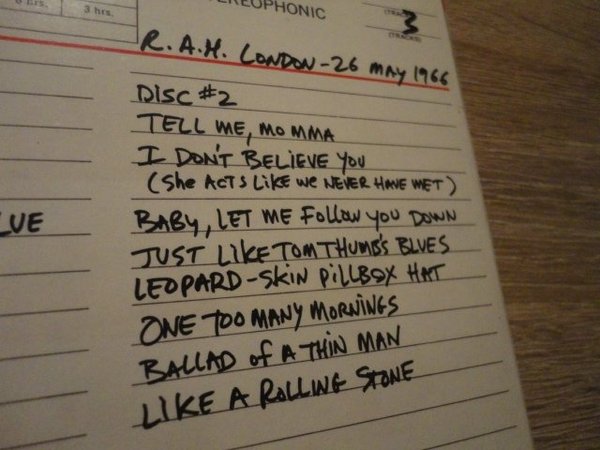 3 hrs.
STEREOPHONIC
3
R.A.H. LONDON-26 MAY 1966
DISC #2
TELL ME, MOMMA
I DON'T BELIEVE YOU
(She ACTS LIKE WE NEVER HAVE MET)
BABY, LET ME FOLLOW YOU DOWN
JUST LIKE TOM THUMB'S BLUES
LEOPARD-SKIN PILLBOX HAT
ONE TOO MANY MORNINGS
BALLAD of A THIN MAN
LIKE A ROLLING STONE